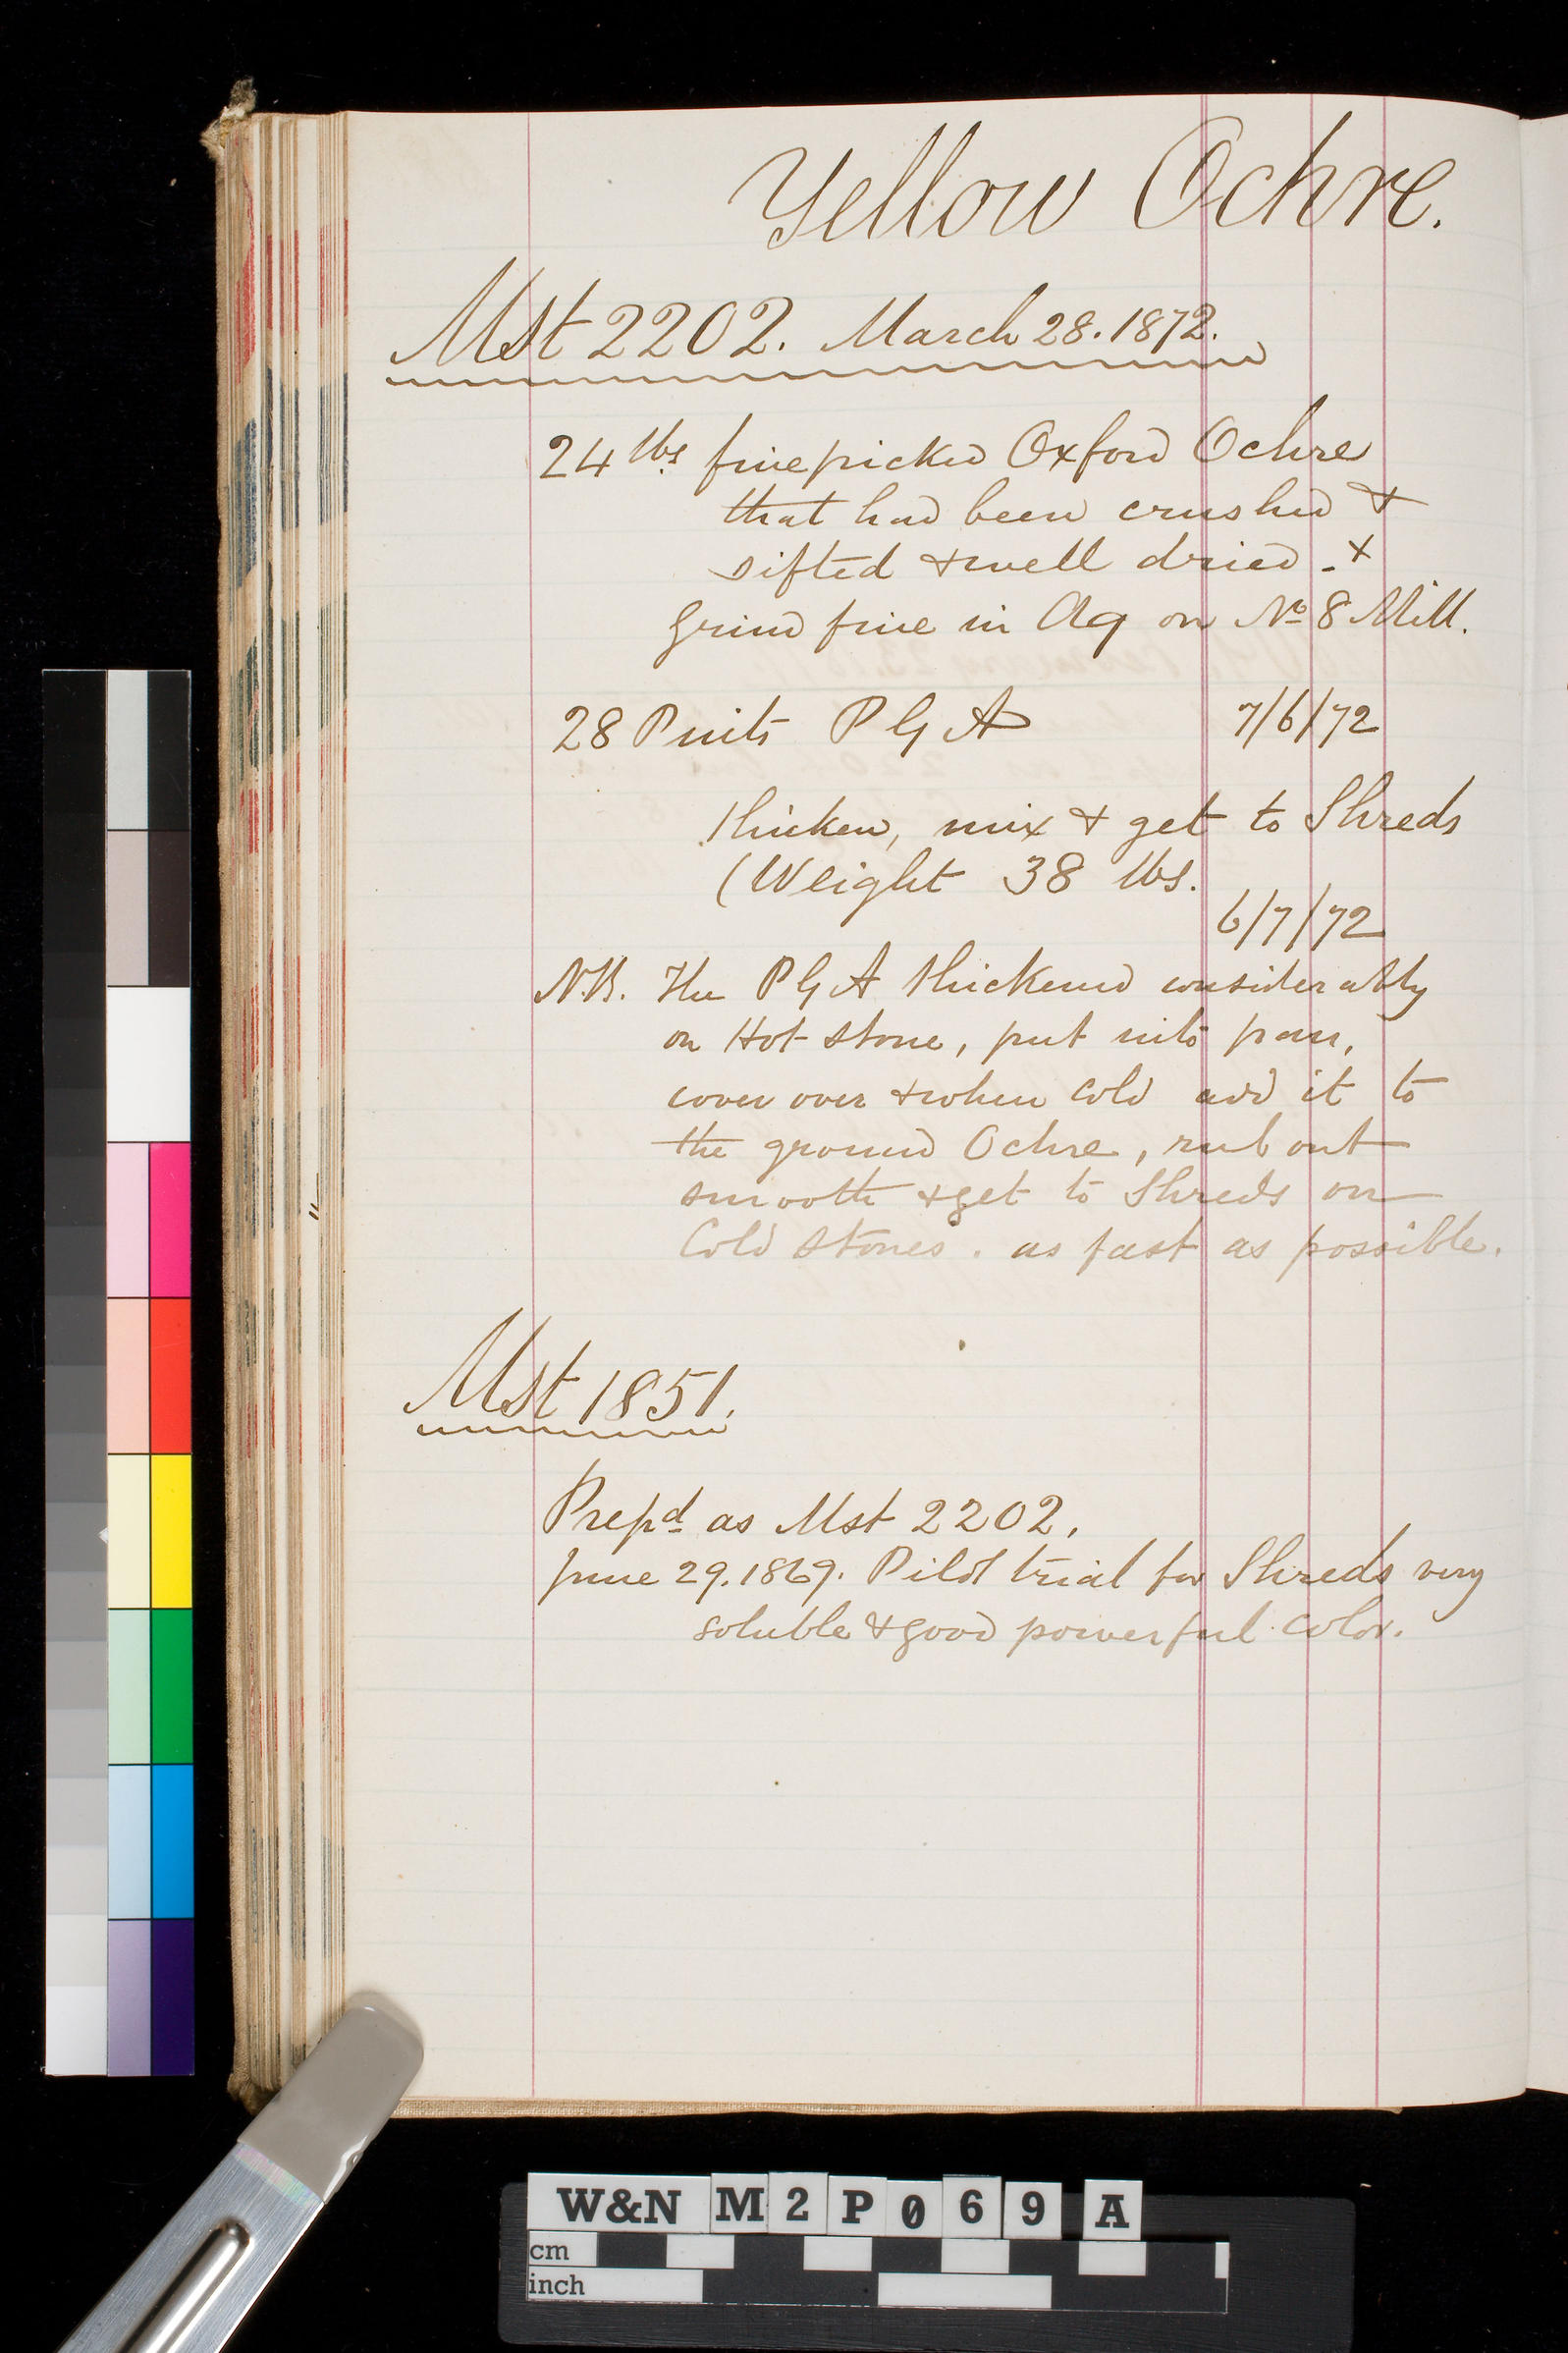 Yellow Ochre.
Mst 2202. March 28. 1872.
24 lbs. fine picked Oxford Ochre
that had been crushed &
sifted & well dried - &
Grind fine in Aq on No 8 Mill.
28 Pints P G A 7/6/72
Thicken, mix & get to Shreds
(Weight 38 lbs.
6/7/72
N.B. The P G A thickened considerably
on Hot stone, put into pan,
cover over & when cold add it to
the ground Ochre, rub out
smooth & get to Shreds on
Cold Stones. as fast as possible.
Mst 1851.
Prepd as Mst 2202.
June 29. 1869. Pilot trial for Shreds very
soluble & good powerful color.
W&N M2P069 A
cm
inch